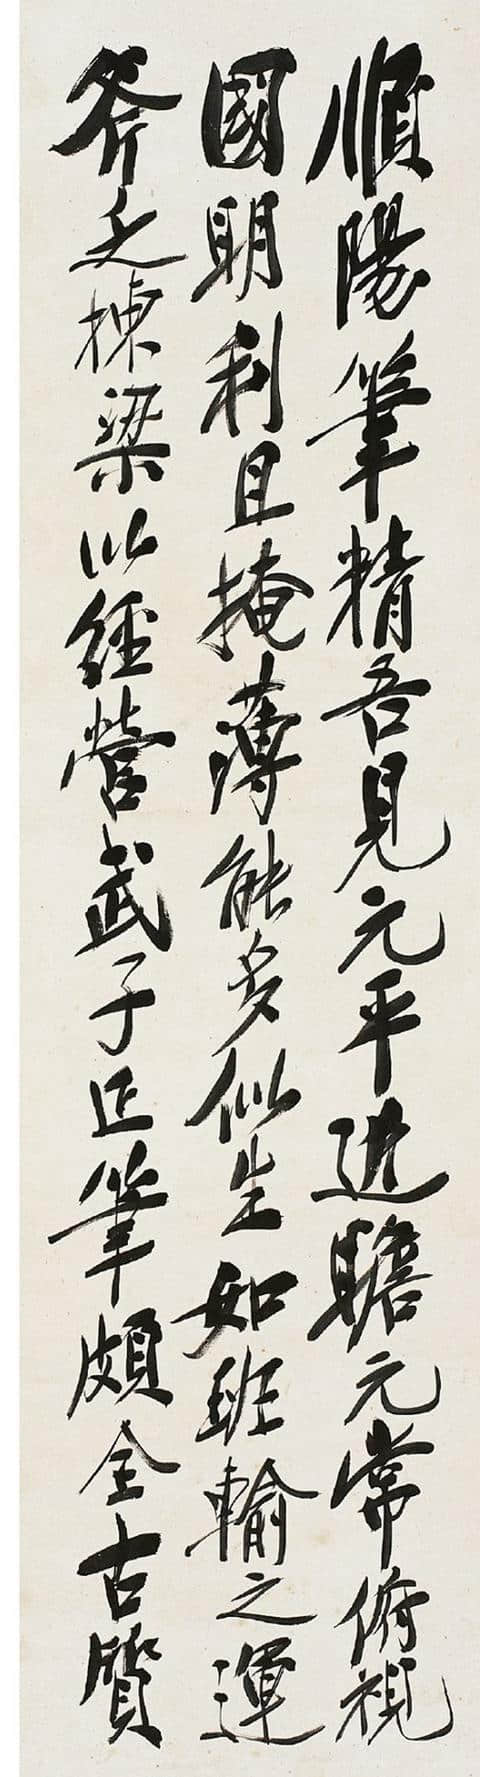 順陽筆精吾見元平進瞻元常俯視
國明利且掩薄能多似生如班輸之運
斧之棟梁以經營武子正筆頗全古質